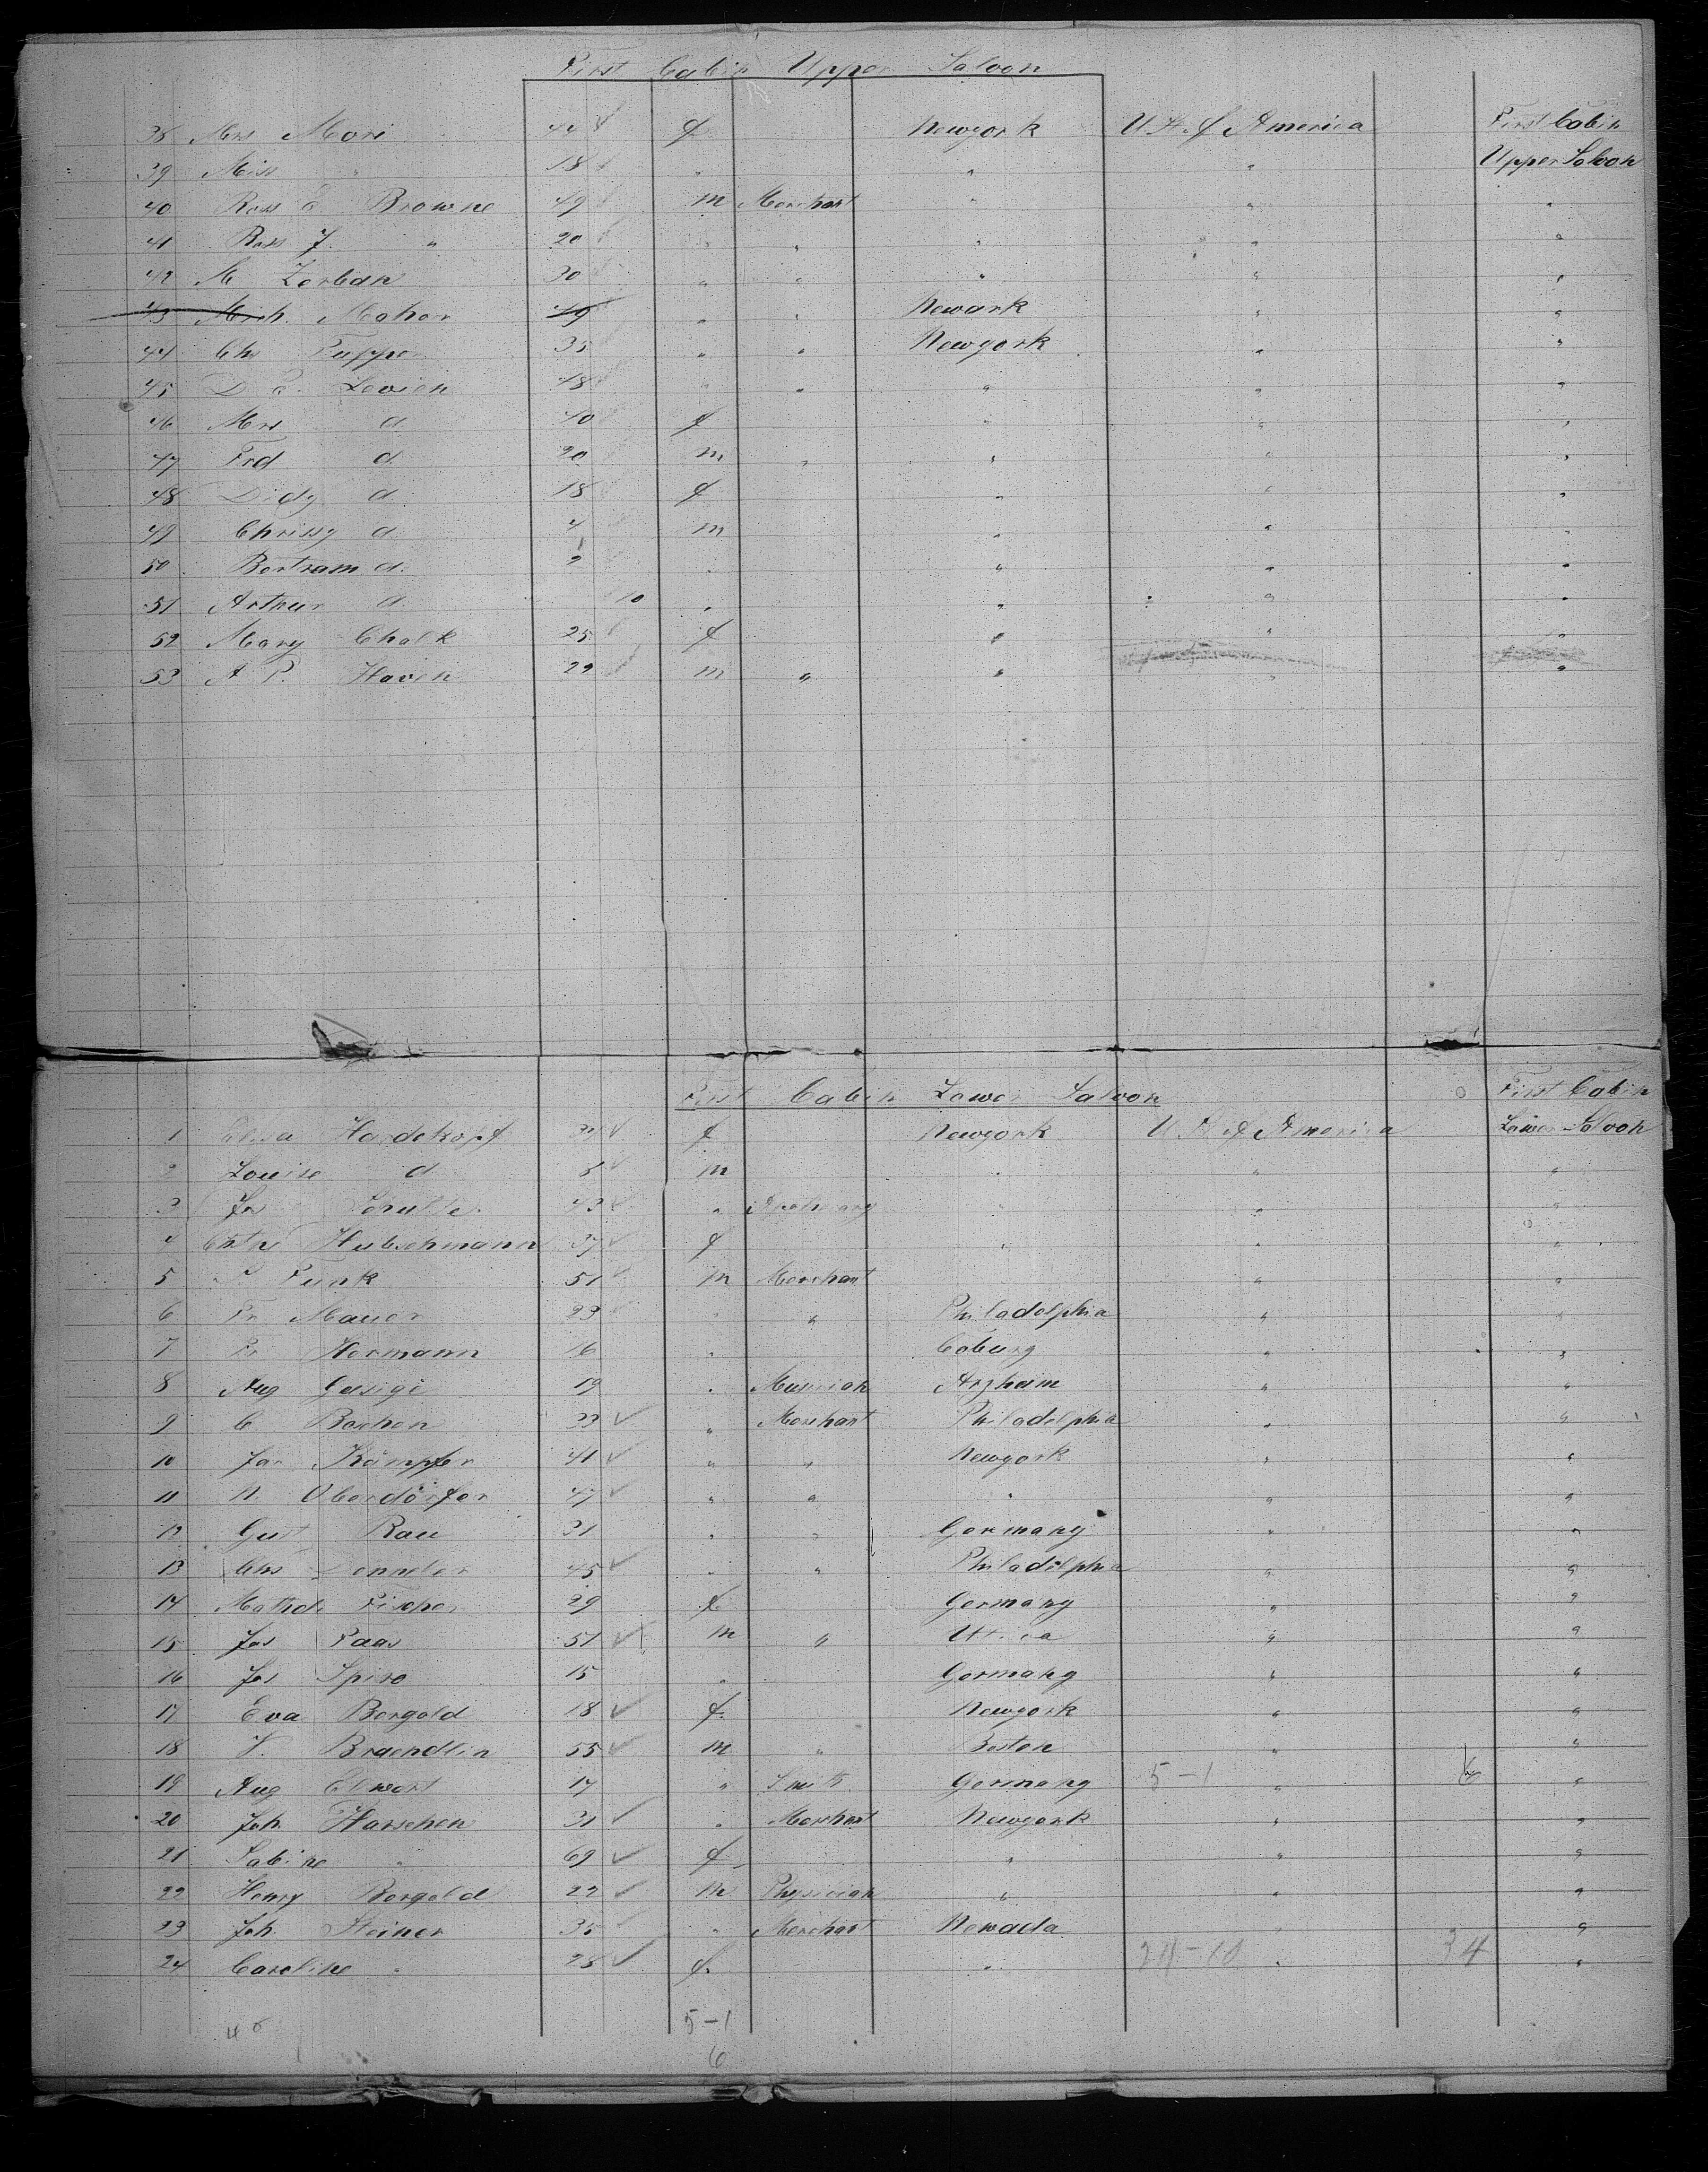 First Cabin Upper Saloon
38 Mrs Mori 44 f Newyork U. St. of America First Cabin
39 Miss " 18 " " " Upper Saloon
40 Ross E Browne 49 m Merchant " " "
41 Ross J. " 20 " " " " "
42 M Zerban 30 " " " " "
43 Mich. Maher 49 " " Newark " "
44 Chs Tupper 35 " " Newyork " "
45 D E. Levien 48 " " " " "
46 Mrs d 40 f " " "
47 Frd d. 20 m " " " "
48 Didy d 18 f " " "
49 Chrissy d 4 m " " "
50 Bertram d. 2 " " " "
51 Arthur d 10 " " " "
52 Mary Chalk 25 f " " "
53 A P. Haven 29 m " " " "
First Cabin Lower Saloon First Cabin
1 Elisa Hardekopf f Newyork U. St. of America Lower Saloon
2 Louise d 8 m " " "
3 Schulte 43 " " " "
4 Hubschmann 37 f " " "
5 Funk 51 m Merchant " "
6 Fr Mauer 23 " " Philadelphia " "
7 Fr Hermann 16 " Coburg " "
8 Aug 19 " Musician Arzheim " "
9 C. Bochen 33 " Merchant Philadelphia " "
10 Jac Kämpfer 41 " " Newyork " "
11 N. Oberdörfer 47 " " " " "
12 Gust Rau 31 " " Germany " "
13 Chs 45 " " Philadelphia " "
14 Mathd. Fischer 29 f Germany " "
15 Jos Paas 51 m " Utica " "
16 Jos Spiro 15 " Germany " "
17 Eva Bergold 18 f. Newyork " "
18 Braendlin 55 m " Boston " "
19 Aug Elwert 17 " Smith Germany 5-1 " 6 "
20 Joh Harschen 31 " Merchant Newyork " "
21 Sabine " 69 f " " "
22 Henry Bergold 22 m Physician " " "
23 Joh. Steiner 35 " Merchant Newada " "
24 Caroline " 25 f. " 24-10 " 34 "
5-1
6